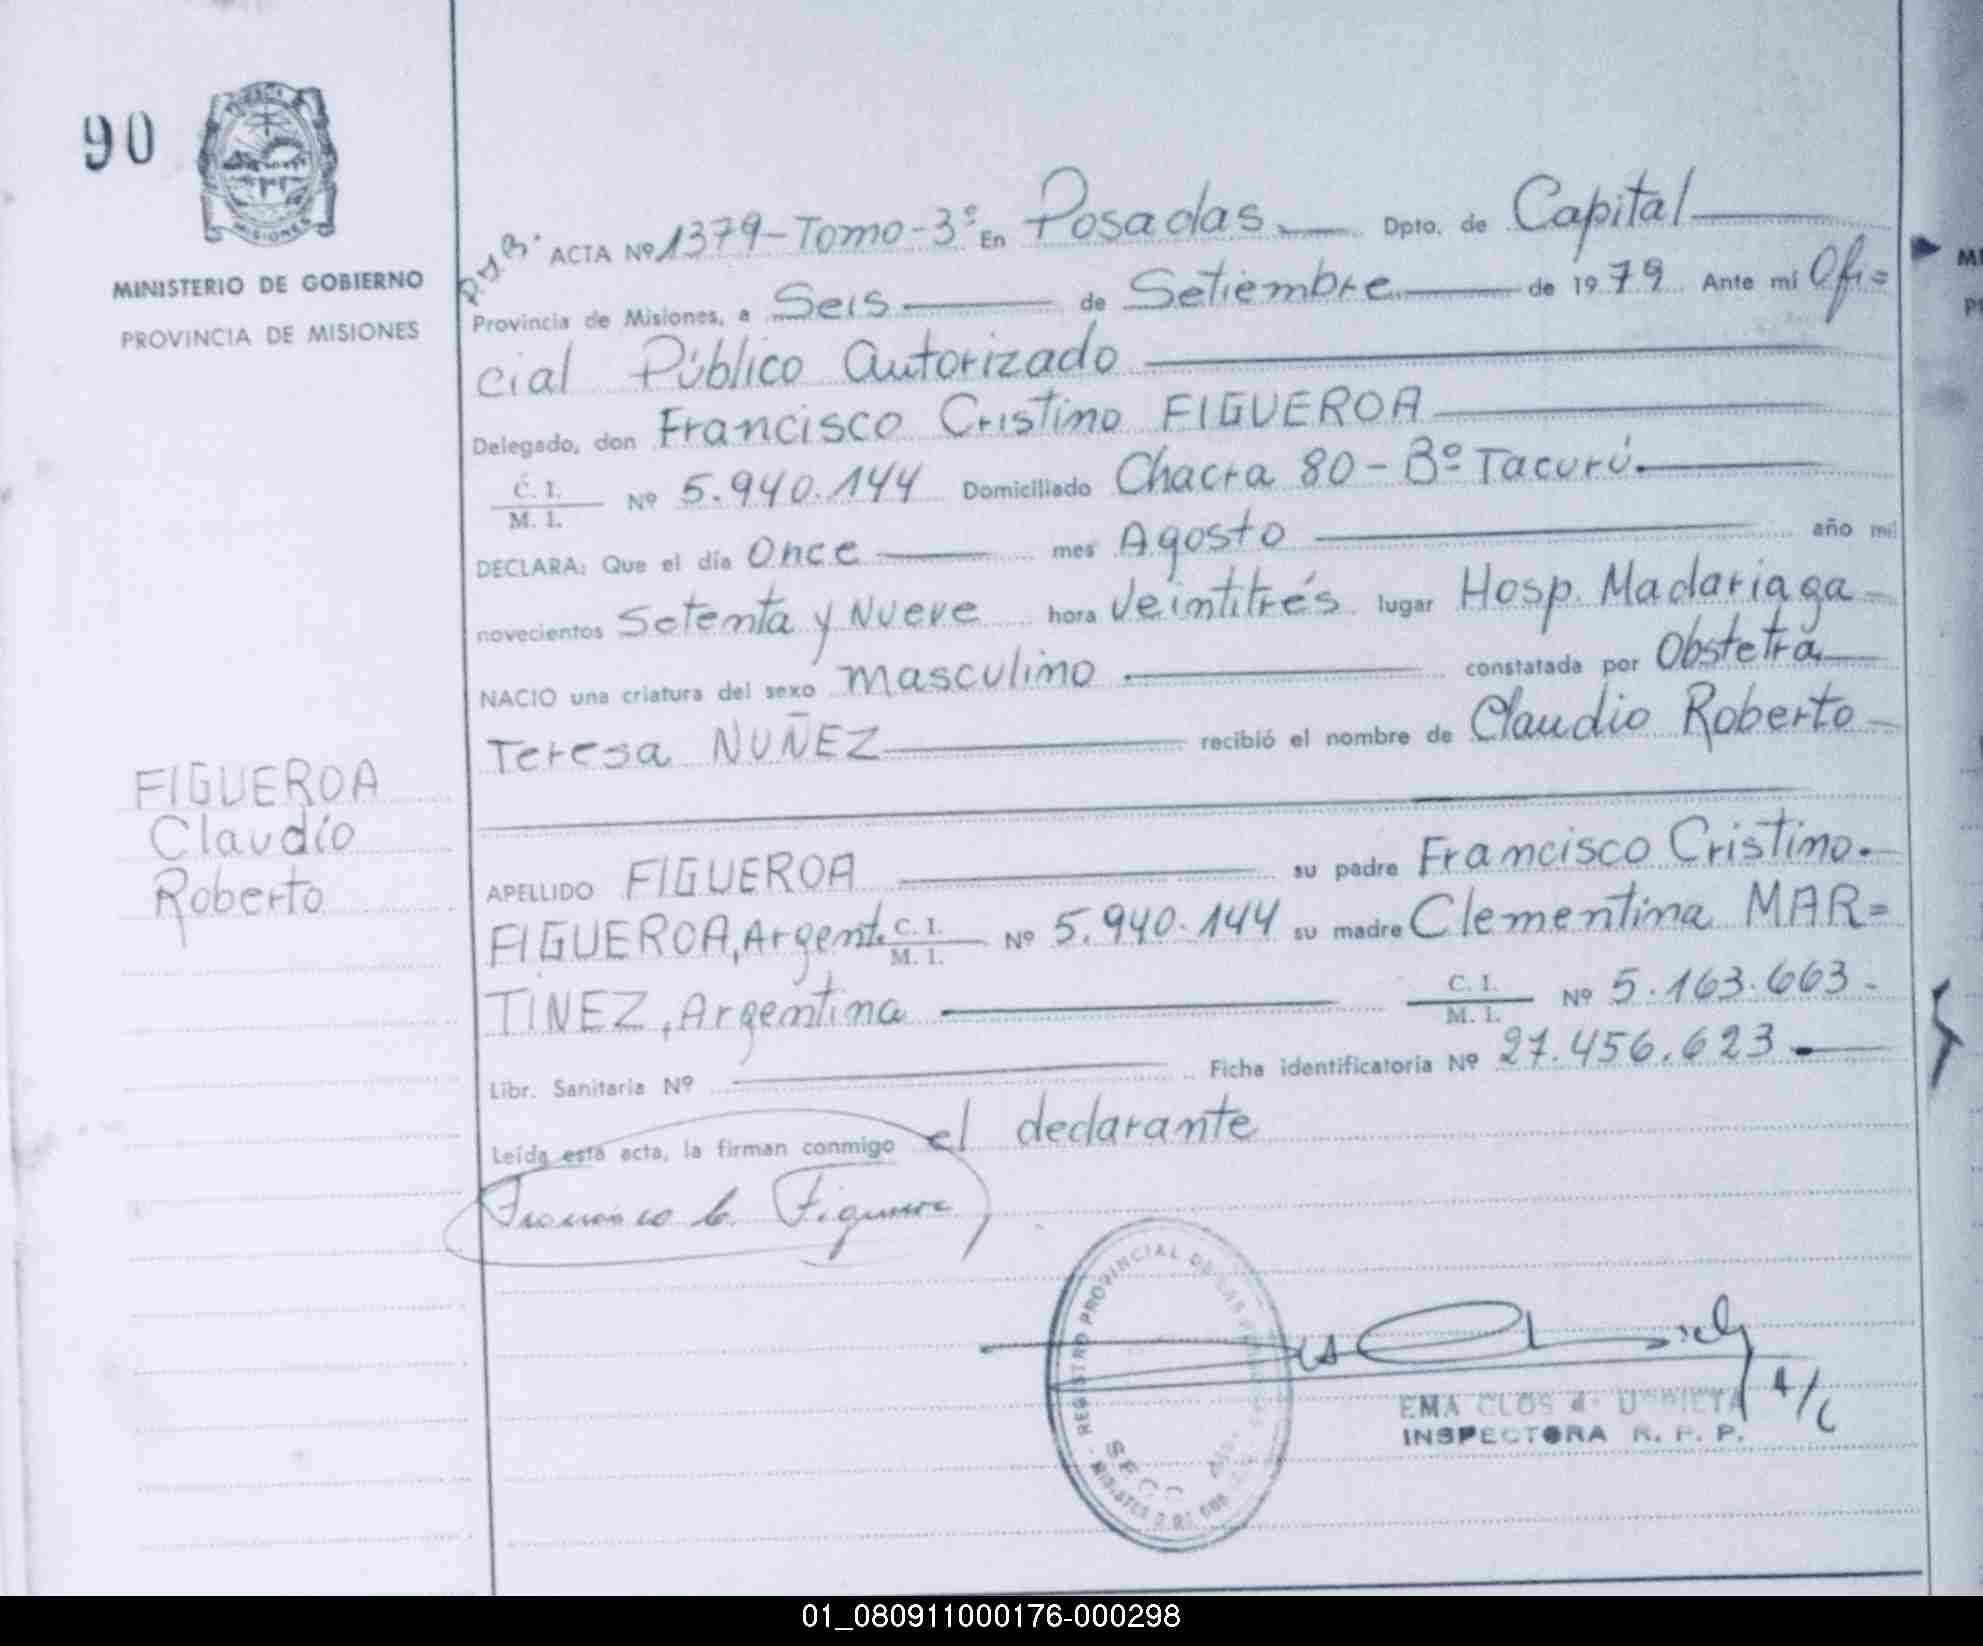 90
MISIONES
MINISTERIO DE GOBIERNO
PROVINCIA DE MISIONES
ACTA Nº 1379-Tomo-3º En Posadas Dpto. de Capital
Provincia de Misiones, a Seis de Setiembre de 1979 Ante mí Ofi=
cial Público Autorizado
Delegado, don Francisco Cristino FIGUEROA
C. I.
M. I. Nº 5.940.144 Domiciliado Chacra 80 - Bº Tacurú.
DECLARA: Que el día Once mes Agosto año mil
novecientos Setenta y Nueve hora Veintitrés lugar Hosp. Madariaga
NACIO una criatura del sexo masculino constatada por Obstetra
Teresa NUÑEZ recibió el nombre de Claudio Roberto
FIGUEROA
Claudio
Roberto
APELLIDO FIGUEROA su padre Francisco Cristino.
FIGUEROA, Argent. C. I.
M. I. Nº 5.940.144 su madre Clementina MAR=
TINEZ, Argentina C. I.
M. I. Nº 5.163.663.
Libr. Sanitaria Nº Ficha identificatoria Nº 27.456.623
Leída esta acta, la firman conmigo el declarante
Francisco C. Figueroa
REGISTRO PROVINCIAL DE LAS
SECC
EMA CLOS
INSPECTORA R. P. P.
01_080911000176-000298